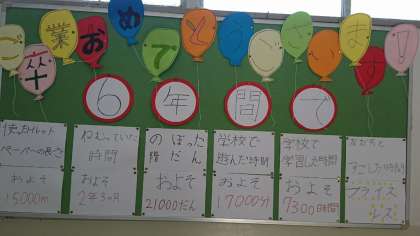 ご卒業おめでとうございます!
6年間で
使ったトイレット
ペーパーの長さ
およそ
15000m
ねむっていた
時間
およそ
2年3ヶ月
のぼった
階だん
およそ
21000だん
学校で
遊んだ時間
およそ
17000分
学校で
学習した時間
およそ
7300時間
友だちと
すごした時間
プライス
レス